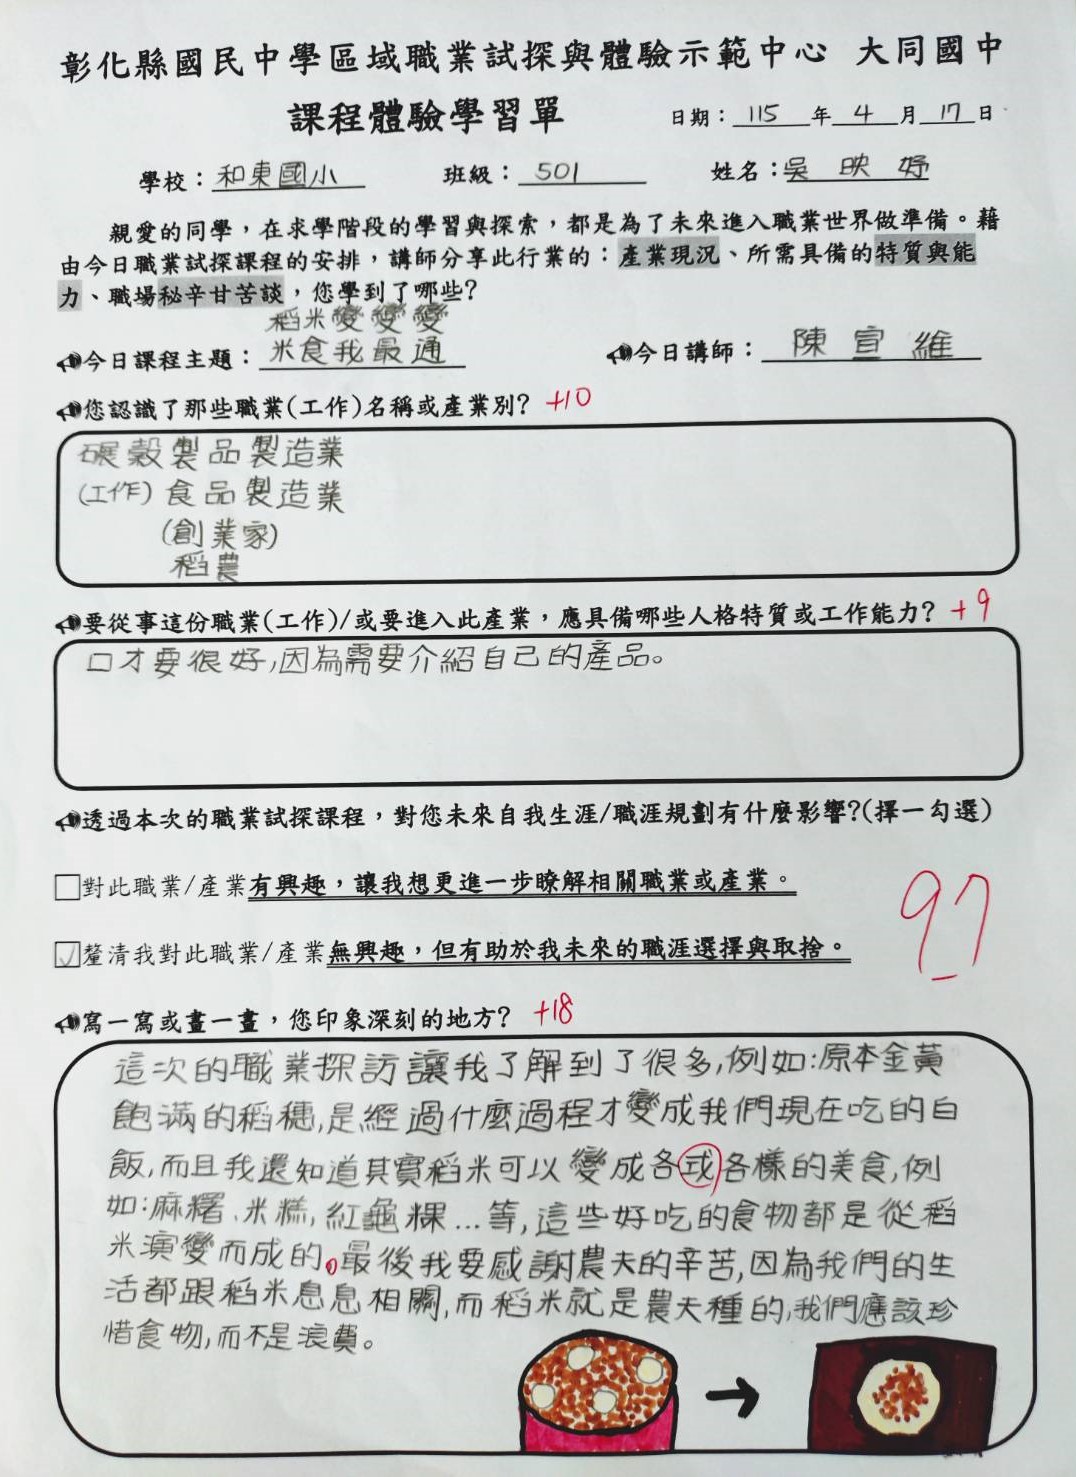 彰化縣國民中學區域職業試探與體驗示範中心 大同國中
課程體驗學習單
日期：115年4月17日
學校：和東國小 班級：501 姓名：吳映妤
親愛的同學，在求學階段的學習與探索，都是為了未來進入職業世界做準備。藉
由今日職業試探課程的安排，講師分享此行業的：產業現況、所需具備的特質與能
力、職場秘辛甘苦談，您學到了哪些?
稻米變變變
今日課程主題：米食我最通 今日講師：陳宣維
您認識了那些職業(工作)名稱或產業別? +10
碾穀製品製造業
(工作)食品製造業
(創業家)
稻農
要從事這份職業(工作)/或要進入此產業，應具備哪些人格特質或工作能力? +9
口才要很好,因為需要介紹自己的產品。
透過本次的職業試探課程，對您未來自我生涯/職涯規劃有什麼影響?(擇一勾選)
□對此職業/產業有興趣，讓我想更進一步瞭解相關職業或產業。
☑釐清我對此職業/產業無興趣，但有助於我未來的職涯選擇與取捨。
97
寫一寫或畫一畫，您印象深刻的地方? +18
這次的職業探訪讓我了解到了很多,例如:原本金黃
飽滿的稻穗,是經過什麼過程才變成我們現在吃的白
飯,而且我還知道其實稻米可以變成各或各樣的美食,例
如:麻糬、米糕,紅龜粿…等,這些好吃的食物都是從稻
米演變而成的。最後我要感謝農夫的辛苦,因為我們的生
活都跟稻米息息相關,而稻米就是農夫種的,我們應該珍
惜食物,而不是浪費。